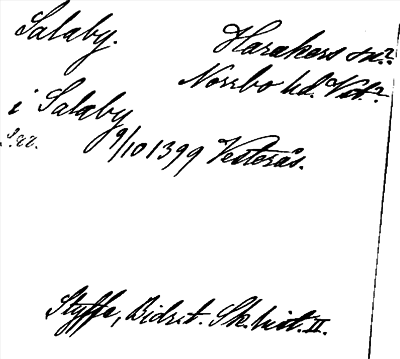 Salaby. Harakers sn.?
Norrbo hd. Vstm.?
i Salaby
9/10 1399 Vesterås.
Styffe, Bidr. t. Sk. hist. II.